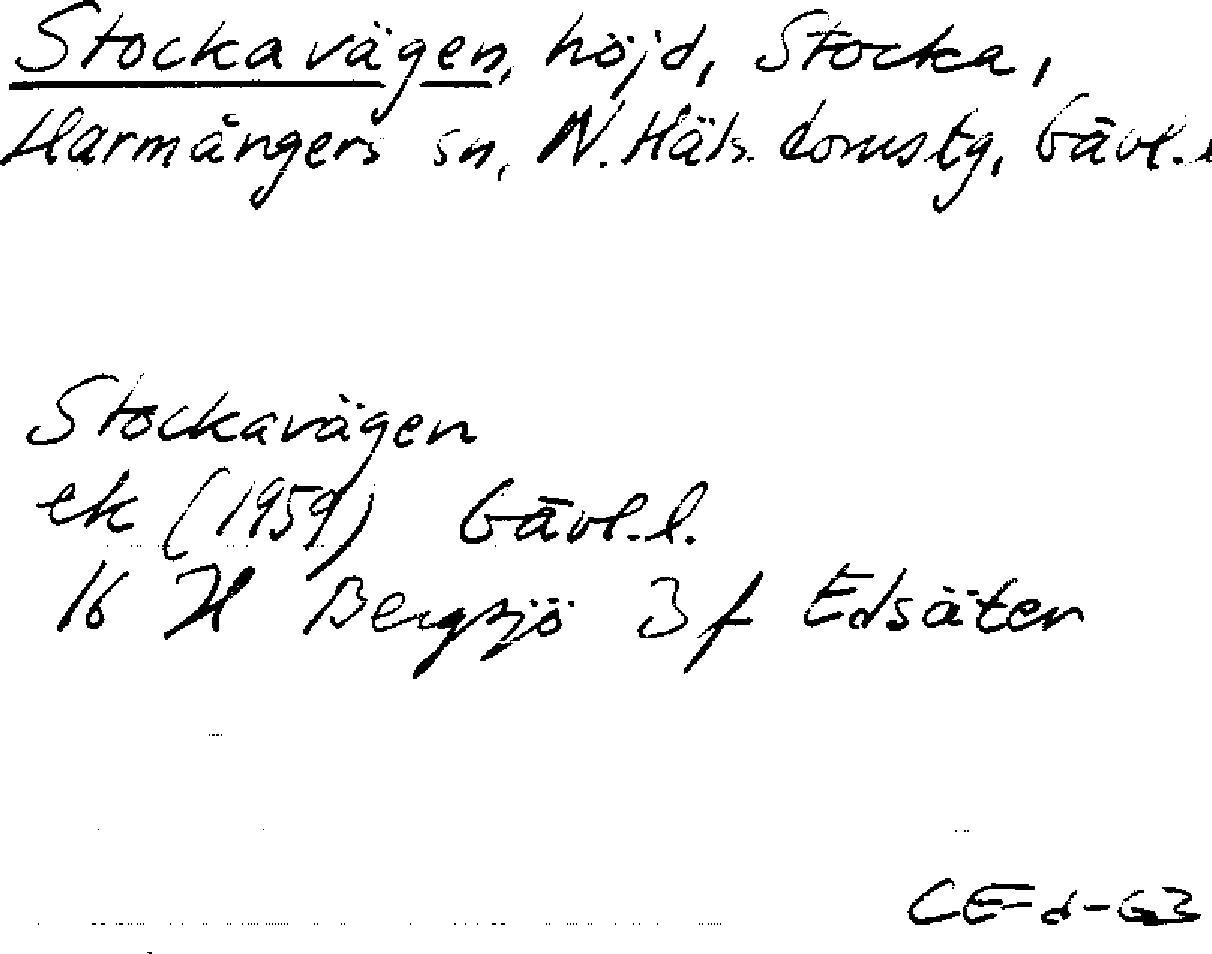 Stockavägen, höjd, Stocka,
Harmångers sn, N. Häls. domstg, Gävl.l
Stockavägen
ek (1959) Gävl.l.
16 H Bergsjö 3f Edsäter
CE d-63